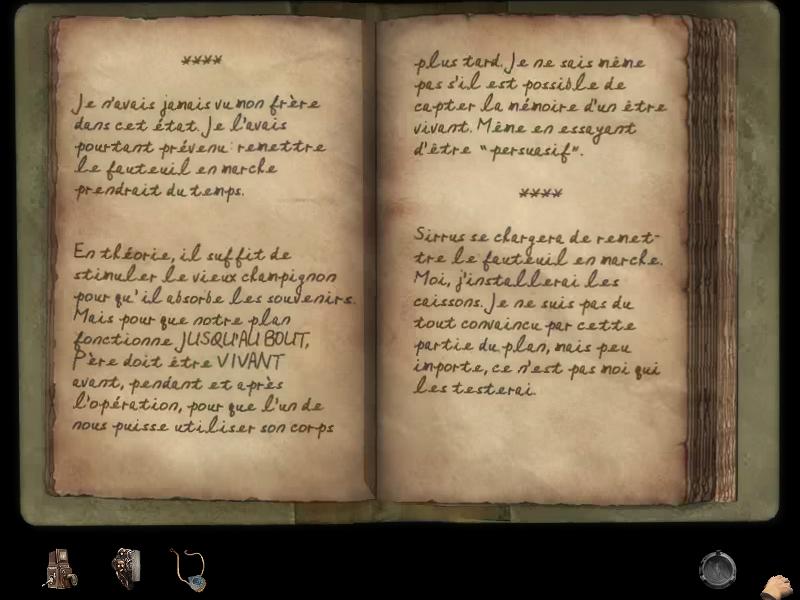 ****
Je n'avais jamais vu mon frère
dans cet état. Je l'avais
pourtant prévenu : remettre
le fauteuil en marche
prendrait du temps.
En théorie, il suffit de
stimuler le vieux champignon
pour qu'il absorbe les souvenirs.
Mais pour que notre plan
fonctionne JUSQU'AU BOUT,
Père doit être VIVANT
avant, pendant et après
l'opération, pour que l'un de
nous puisse utiliser son corps
plus tard. Je ne sais même
pas s'il est possible de
capter la mémoire d'un être
vivant. Même en essayant
d'être "persuasif".
****
Sirrus se chargera de remet-
tre le fauteuil en marche.
Moi, j'installerai les
caissons. Je ne suis pas du
tout convaincu par cette
partie du plan, mais peu
importe, ce n'est pas moi qui
les testerai.